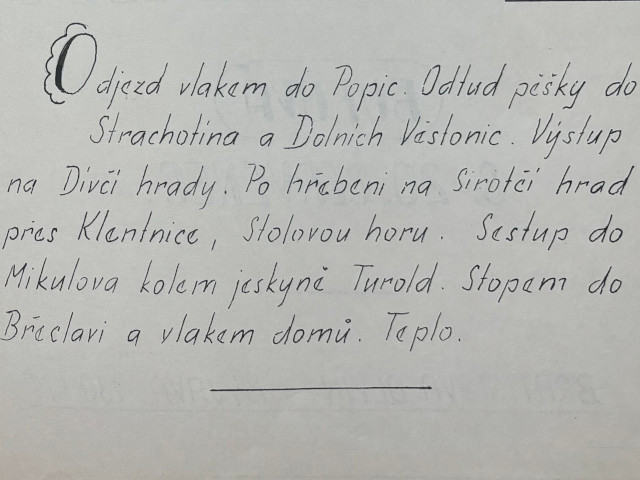 Odjezd vlakem do Popic. Odtud pěšky do
Strachotína a Dolních Věstonic. Výstup
na Dívčí hrady. Po hřebeni na Sirotčí hrad
přes Klentnice, Stolovou horu. Sestup do
Mikulova kolem jeskyně Turold. Stopem do
Břeclavi a vlakem domů. Teplo.